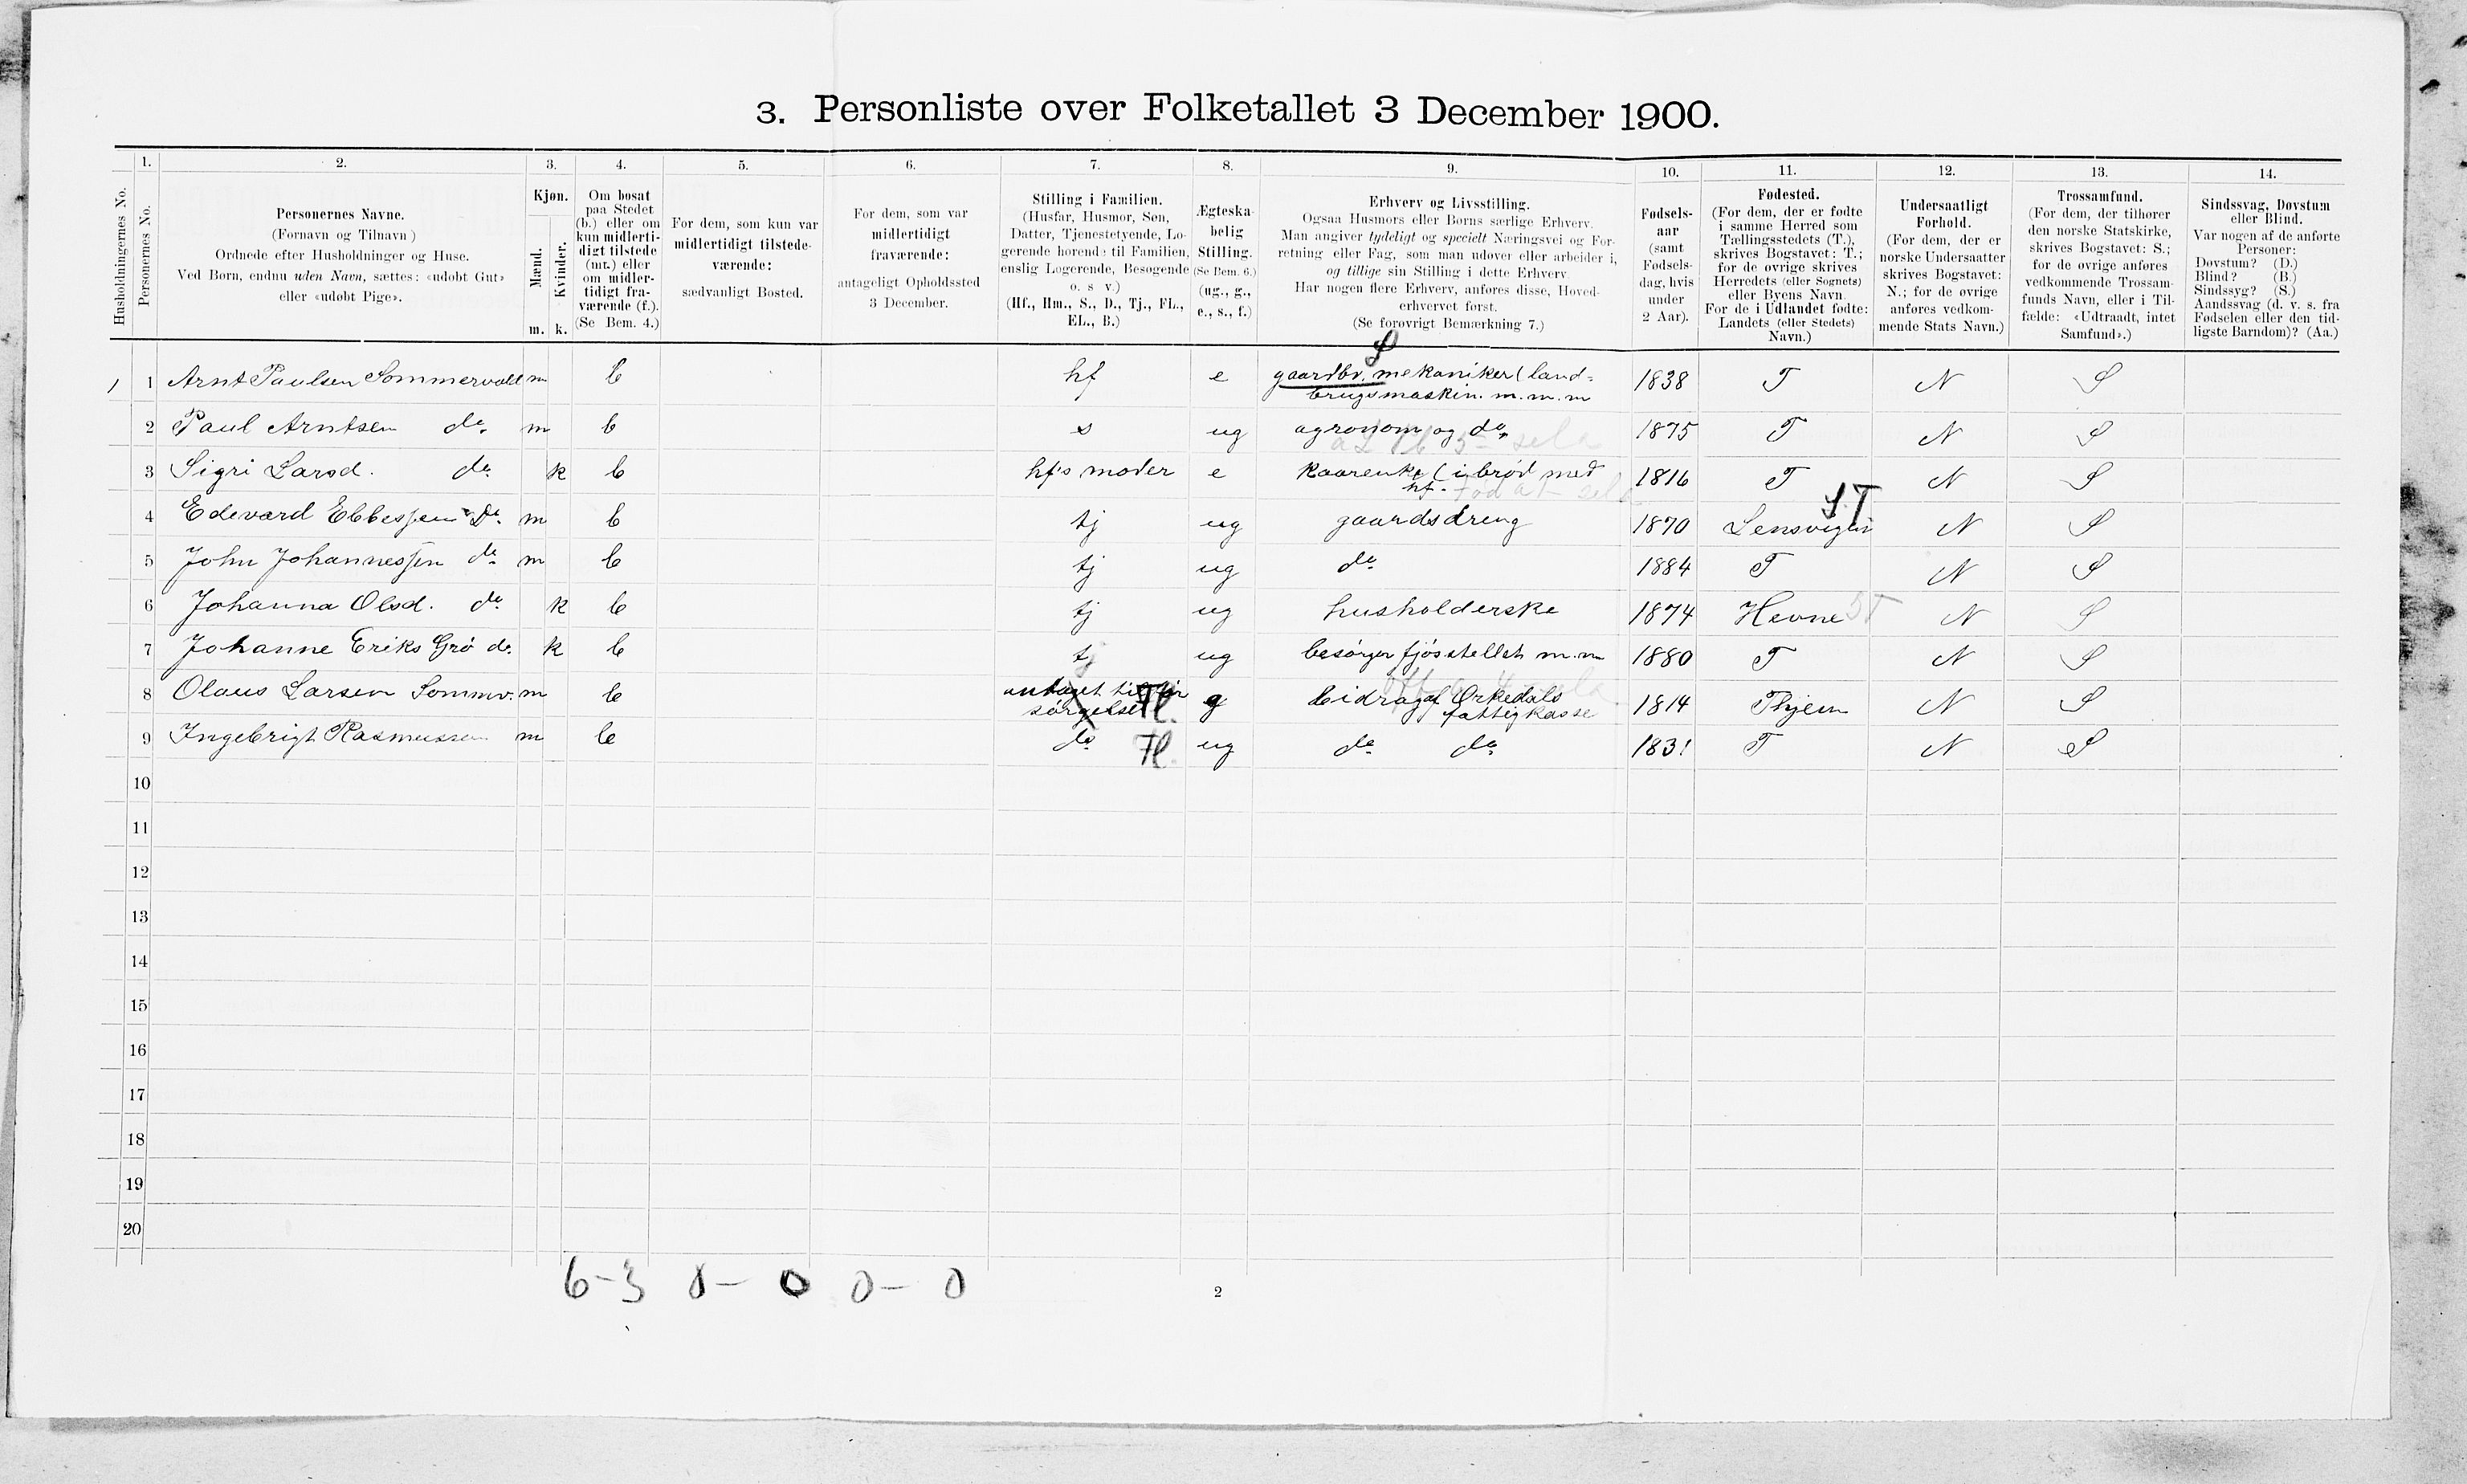 3. Personliste over Folketallet 3 December 1900.
1. 2. 3. 4. 5. 6. 7. 8. 9. 10. 11. 12. 13. 14.
Husholdningernes No.
Personernes No.
Personernes Navne.
(Fornavn og Tilnavn)
Ordnede efter Husholdninger og Huse.
Ved Børn, endnu uden Navn, sættes: «udøbt Gut»
eller «udøbt Pige».
Kjøn.
Mænd.
Kvinder.
m. k.
Om bosat
paa Stedet
(b.) eller om
kun midlerti-
digt tilstede
(mt.) eller
om midler-
tidigt fra-
værende (f.).
(Se Bem. 4.)
For dem, som kun var
midlertidigt tilstede-
værende:
sædvanligt Bosted.
For dem, som var
midlertidigt
fraværende:
antageligt Opholdssted
3 December.
Stilling i Familien.
(Husfar, Husmor, Søn,
Datter, Tjenestetyende, Lo-
gerende hørende til Familien,
enslig Logerende, Besøgende
o. s. v.)
(Hf., Hm., S., D., Tj., FL.,
EL., B.)
Ægteska-
belig
Stilling.
(Se Bem. 6.)
(ug., g.,
e., s., f.)
Erhverv og Livsstilling.
Ogsaa Husmors eller Børns særlige Erhverv.
Man angiver tydeligt og specielt Næringsvei og For-
retning eller Fag, som man udøver eller arbeider i,
og tillige sin Stilling i dette Erhverv.
Har nogen flere Erhverv, anføres disse, Hoved-
erhvervet først.
(Se forøvrigt Bemærkning 7.)
Fødsels-
aar
(samt
Fødsels-
dag, hvis
under
2 Aar).
Fødested.
(For dem, der er fødte
i samme Herred som
Tællingsstedets (T.),
skrives Bogstavet: T.;
for de øvrige skrives
Herredets (eller Sognets)
eller Byens Navn.
For de i Udlandet fødte:
Landets (eller Stedets)
Navn.)
Undersaatligt
Forhold.
(For dem, der er
norske Undersaatter
skrives Bogstavet:
N.; for de øvrige
anføres vedkom-
mende Stats Navn.)
Trossamfund.
(For dem, der tilhører
den norske Statskirke,
skrives Bogstavet: S.;
for de øvrige anføres
vedkommende Trossam-
funds Navn, eller i Til-
fælde: «Udtraadt, intet
Samfund».)
Sindssvag, Døvstum
eller Blind.
Var nogen af de anførte
Personer:
Døvstum? (D.)
Blind? (B.)
Sindssyg? (S.)
Aandssvag (d. v. s. fra
Fødselen eller den tid-
ligste Barndom)? (Aa.)
S
1 1 Arnt Paulsen Sommervold m b hf e gaardbr. mekaniker (land= 1838 T N S
brugsmaskin. m.m.m
2 Paul Arntsen do. m b s ug agronom og do. 1875 T N S
3 Sigri Larsd. do. k b hf's moder e kaarenke (i brød med 1816 T N S
hf.
S.T
4 Edevard Ebbessen do. m b tj ug gaardsdreng 1870 Lensvigen N S
5 John Johannessen do. m b tj ug do. 1884 T N S
6 Johanna Olsd. do. k b tj ug husholderske 1874 Hevne ST N S
7 Johanne Eriks Grø do. k b tj ug besørger fjøsstellet m.m 1880 T N S
8 Olaus Larsen Sommv. m b antaget til for g bidrag af Orkedals 1814 Thjem N S
sørgelse Fl. fattigkasse
9 Ingebrigt Rasmussen m b do. Fl. ug do. do. 1831 T N S
10
11
12
13
14
15
16
17
18
19
20
6-3 0- 0 0- 0
2